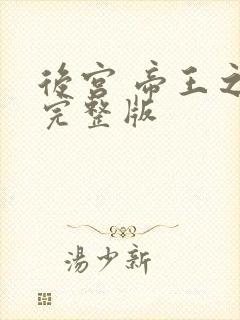 後宮 帝王之
完整版
湯少新